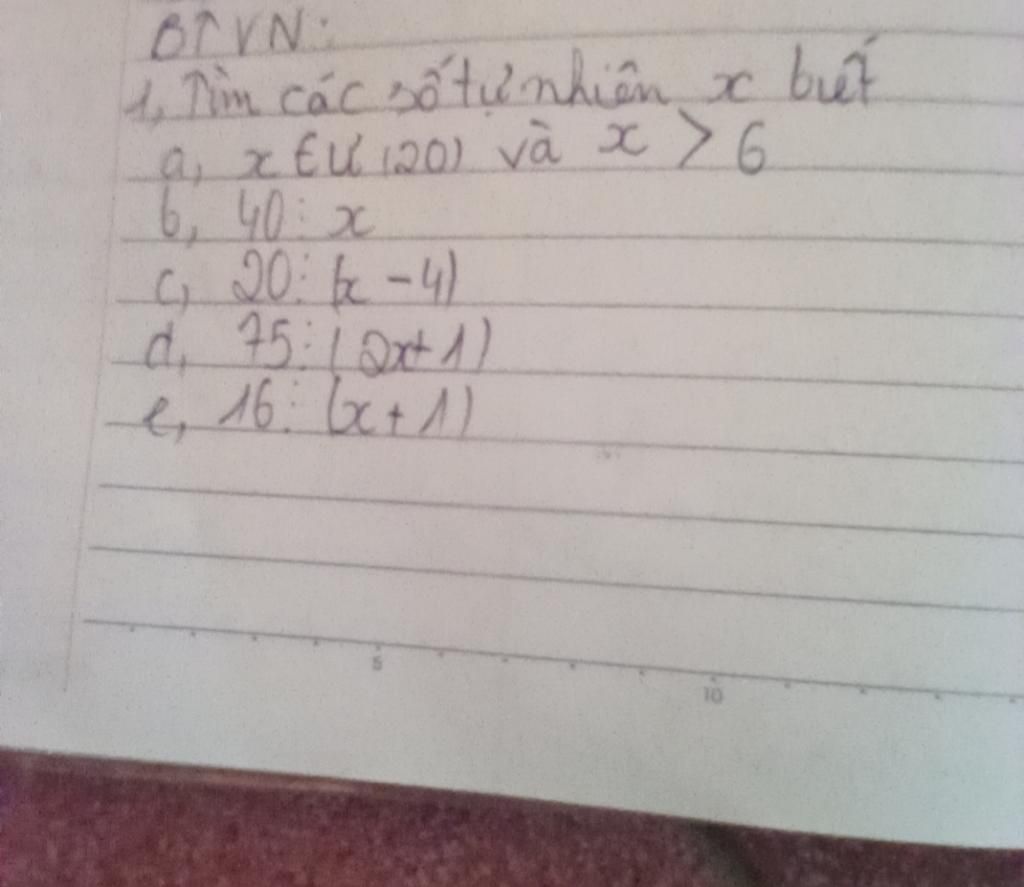 BTVN:
1, Tìm các số tự nhiên x biết
a, x ∈ Ư (20) và x > 6
b, 40 ⋮ x
c, 20 ⋮ (x - 4)
d, 75 ⋮ (2x + 1)
e, 16 ⋮ (x + 1)
5
10